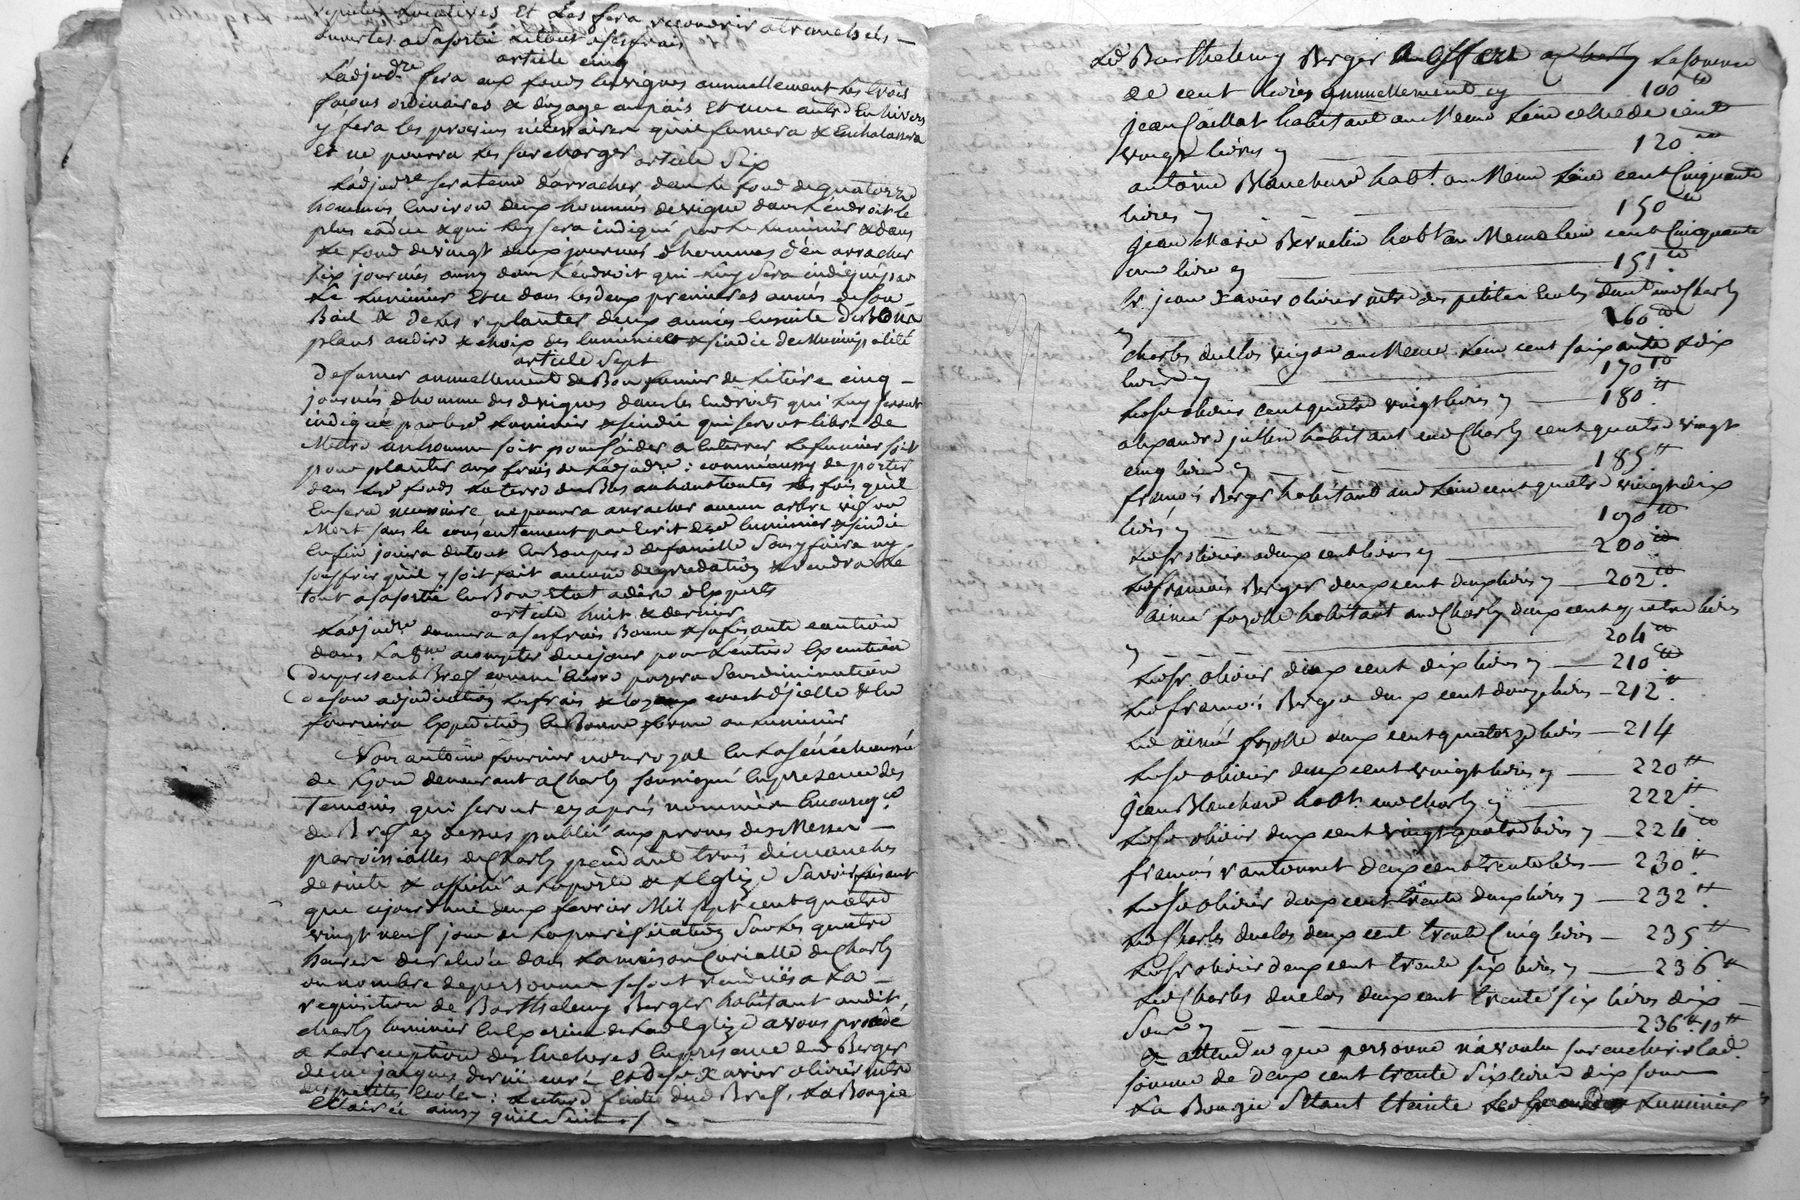 reputées Locatives Et Les fera recouvrir a tranchées
ouvertes a Sa sortie le tout a ses frais
article cinq
L'adjudre fera aux fonds les vignes annuellement Les trois
façons ordinaires & d'usage au pais Et une autre En hivers
y fera les provins nécessaires qu'il fumera & Enchalassera
Et ne pourra Les surcharger article Six
L'adjudre sera tenu d'arracher dans Le fond de quatorze
hommées Environ deux hommées de vigne dans L'endroit le
plus caduc & qui Luy sera indiqué par Le Luminier & dans
Le fond de vingt deux journées d'hommes d'en arracher
six journées aussy dans L'endroit qui Luy Sera indiqué par
Le Luminier Et ce dans les deux premieres années de son
Bail & de les replanter deux années Ensuite de Bons
plans au dire & choix des Luminier & sindic de Municipalité
article Sept
De fumer annuellement de Bon fumier de Litière cinq
journées d'homme des d vignes dans les Endroits qui Luy seront
indiqué par led Luminier & sindic qui seront libre de
Mettre un homme soit pour L'aider a Enterrer Le fumier soit
pour planter aux frais de L'adjudre : comme aussy de porter
dans Led fonds La terre du Bas en haut toutes Les fois qu'il
En sera necessaire ne pourra arracher aucun arbre vif ou
Mort sans le consentement par Ecrit desd Luminier & sindic
Enfin jouira du tout En Bon pere de famille Sans y faire ny
souffrir qu'il y soit fait aucune degredation & rendra Le
tout a sa sortie En Bon Etat a dire d'Experts
article huit & dernier
L'adjudre donnera a ses frais Bonne & sufisante caution
dans La 8ne a compter de ce jour pour L'entiere Execution
du present Bref comme Encore payera Sans diminution
de son adjudication Les frais & Loyaux couts d'jcelle & En
fournira Expedition En Bonne forme au Luminier
Nous antoine fournier nore royal En La sénéchaussée
de Lyon demeurant a Charly soussigné En presence des
Temoins qui seront cy après nommés En
du Bref cy dessus publié aux prones des Messes
paroissialles de Charly pendant trois dimanches
de suite & affiché a La porte de L'Eglize Savoir faisant
que cejourd'hui deux fevrier Mil sept cent quatre
vingt neuf jour de La purification Sur Les quatre
heures de relevée dans La maison Curialle de Charly
ou nombre de personnes se sont rendües a La
requisition de Barthelemy Berger habitant audit
charly Luminier En Exercice de Lad Eglize avons procédé
a La reception des Encheres En presence dud Berger
de me jacques curé Et de sr Xavier olivier mtre
des petites Ecoles : Lecture faite dud Bref, La Bougie
Eclairée ainsy qu'il Suit
Led Barthelemy Berger a offert Lasomme
de cent livres annuellement cy — 100tt
jean Caillat habitant au Meme Lieu celle de cent
vingt livres cy — 120tt
antoine Blanchard habt. au Meme Lieu cent Cinquante
livres cy — 150tt
jean Marie Bernelin habt au Meme lieu cent Cinquante
une livre cy — 151tt
Sr jean Xavier olivier mtre des petites Ecoles dud Charly
cy — 160tt
charles duclos vigon au Meme Lieu cent soixante & dix
livres cy — 170tt
Led sr olivier cent quatre vingt livres cy — 180tt
alexandre jullien habitant aud Charly cent quatre vingt
cinq livres cy — 185tt
francois Berger habitant aud Lieu cent quatre vingt dix
livres cy — 190tt
Led sr olivier a deux cent livres cy — 200tt
Led francois Berger deux cent deux livres cy — 202tt
aimé fayolle habitant aud Charly deux cent quatre livres
cy — 204tt
Led sr olivier deux cent dix livres cy — 210tt
Led francois Berger deux cent douze livres — 212tt
Led aimé fayolle deux cent quatorze livres — 214
Led sr olivier deux cent vingt livres cy — 220tt
jean Blanchard habt. aud Charly cy — 222tt
Led sr olivier deux cent vingt quatre livres cy — 224tt
francois vantonnet deux cent trente livres — 230tt
Led sr olivier deux cent trente deux livres cy — 232tt
Led Charles duclos deux cent trente Cinq livres — 235tt
Led sr olivier deux cent trente six livres cy — 236tt
Led Charles duclos deux cent trente six livres dix
Sous cy — 236tt.10tt
& attendu que personne n'a voulu surencherir lad.
somme de deux cent trente six livres dix sous
La Bougie Etant Eteinte Led Luminier